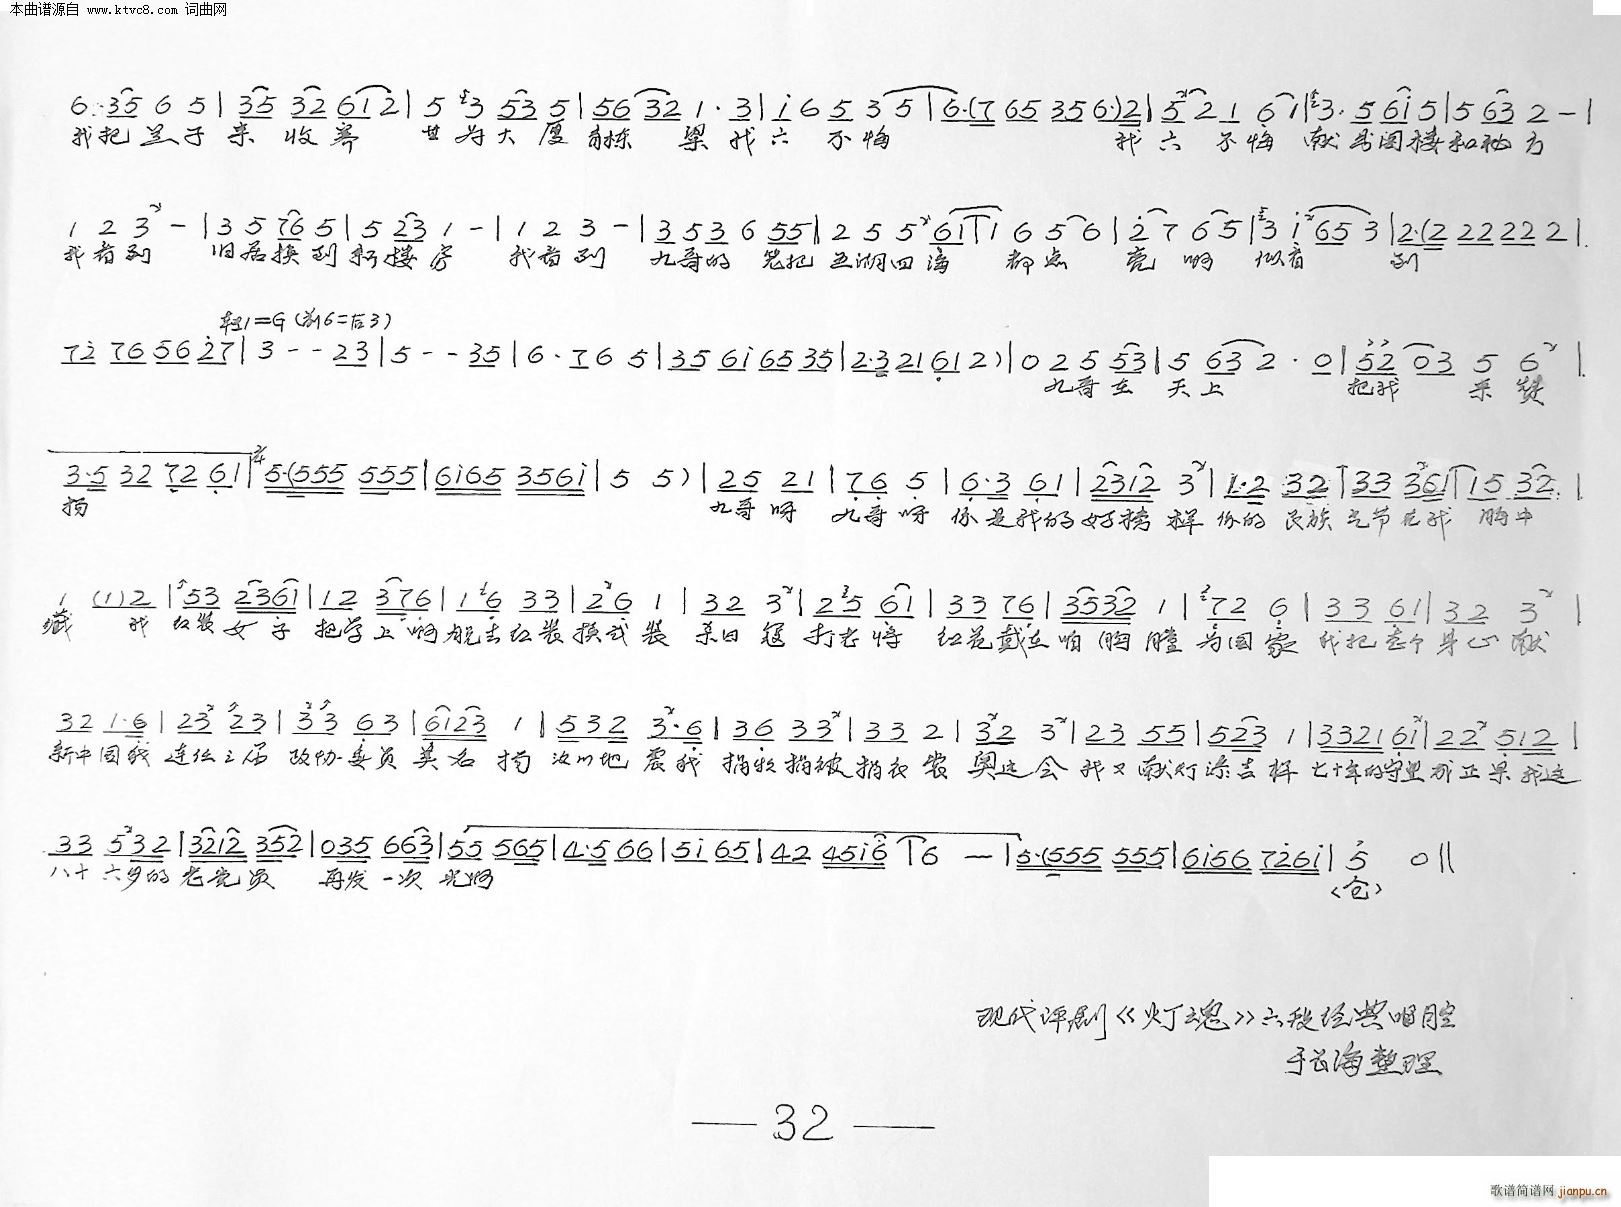 本曲谱源自 www.ktvc8.com 词曲网
6·35 6 5 | 35 32 612 | 5 3 53 5 | 56 32 1·3 | i 6 5 3 5 | 6·(7 65 35 6·)2 | 5 2 1 6 1 | 3·5 6i 5 | 5 63 2 - |
我把 子来收养 甘为大厦 栋梁我六不悔 我六不悔 献 图楼和秘方
1 2 3 - | 3 5 76 5 | 5 23 1 - | 1 2 3 - | 3 5 3 6 55 | 2 5 5 61 1 6 5 6 | 2 7 6 5 | 3 i 65 3 | 2·(2 22 22 2 |
我看到 旧居换到新楼房 我看到 九哥的 把五湖四海都点亮啊 似看到
转1=G(前6=后3)
72 76 56 27 | 3 - - 23 | 5 - - 35 | 6·7 6 5 | 35 6i 65 35 | 2·3 21 61 2) | 0 2 5 53 | 5 63 2·0 | 52 03 5 6 |
九哥在天上 把我来赞
3·5 32 72 61 | 5·(555 555 | 6i65 356i | 5 5) | 25 21 | 76 5 | 6·3 61 | 2312 3 | 1·2 32 | 33 361 | 15 32 |
扬 九哥呀 九哥呀 你是我的好榜样 你的民族气节在我胸中
1 (1)2 | 53 2361 | 12 376 | 16 33 | 26 1 | 32 3 | 25 61 | 33 76 | 3532 1 | 72 6 | 33 61 | 32 3 |
藏 我红装女子把学上啊脱去红装换戎装 杀日寇打老蒋 红花戴在咱胸膛 为国家我把整个身心献
32 1·6 | 23 23 | 33 63 | 6123 1 | 532 3·6 | 36 33 | 33 2 | 32 3 | 23 55 | 523 1 | 332161 | 22 512 |
新中国我连任三届政协委员美名扬 汶川地震我捐款捐被捐衣裳 奥运会我又献灯添吉祥 七十年的守望成正果我这
33 532 | 3212 352 | 035 663 | 55 565 | 4·5 66 | 5i 65 | 42 45i6 6 — | 5·(555 555 | 6i56 726i | 5 0 ||
八十六岁的老党员 再发一次光啊 〈仓〉
现代评剧《灯魂》六段经典唱腔
于云海整理
— 32 —
歌谱简谱网 jianpu.cn